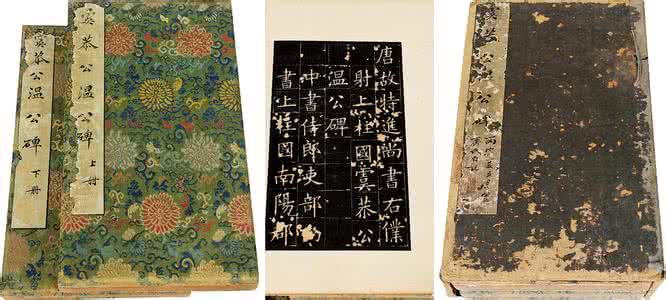 虞恭公温公碑
下冊
虞恭公温公碑
上冊
唐故特進尚書右僕
射上柱國虞恭公
温公碑
中書侍郎吏部
書上柱國南陽郡
虞恭公温公碑